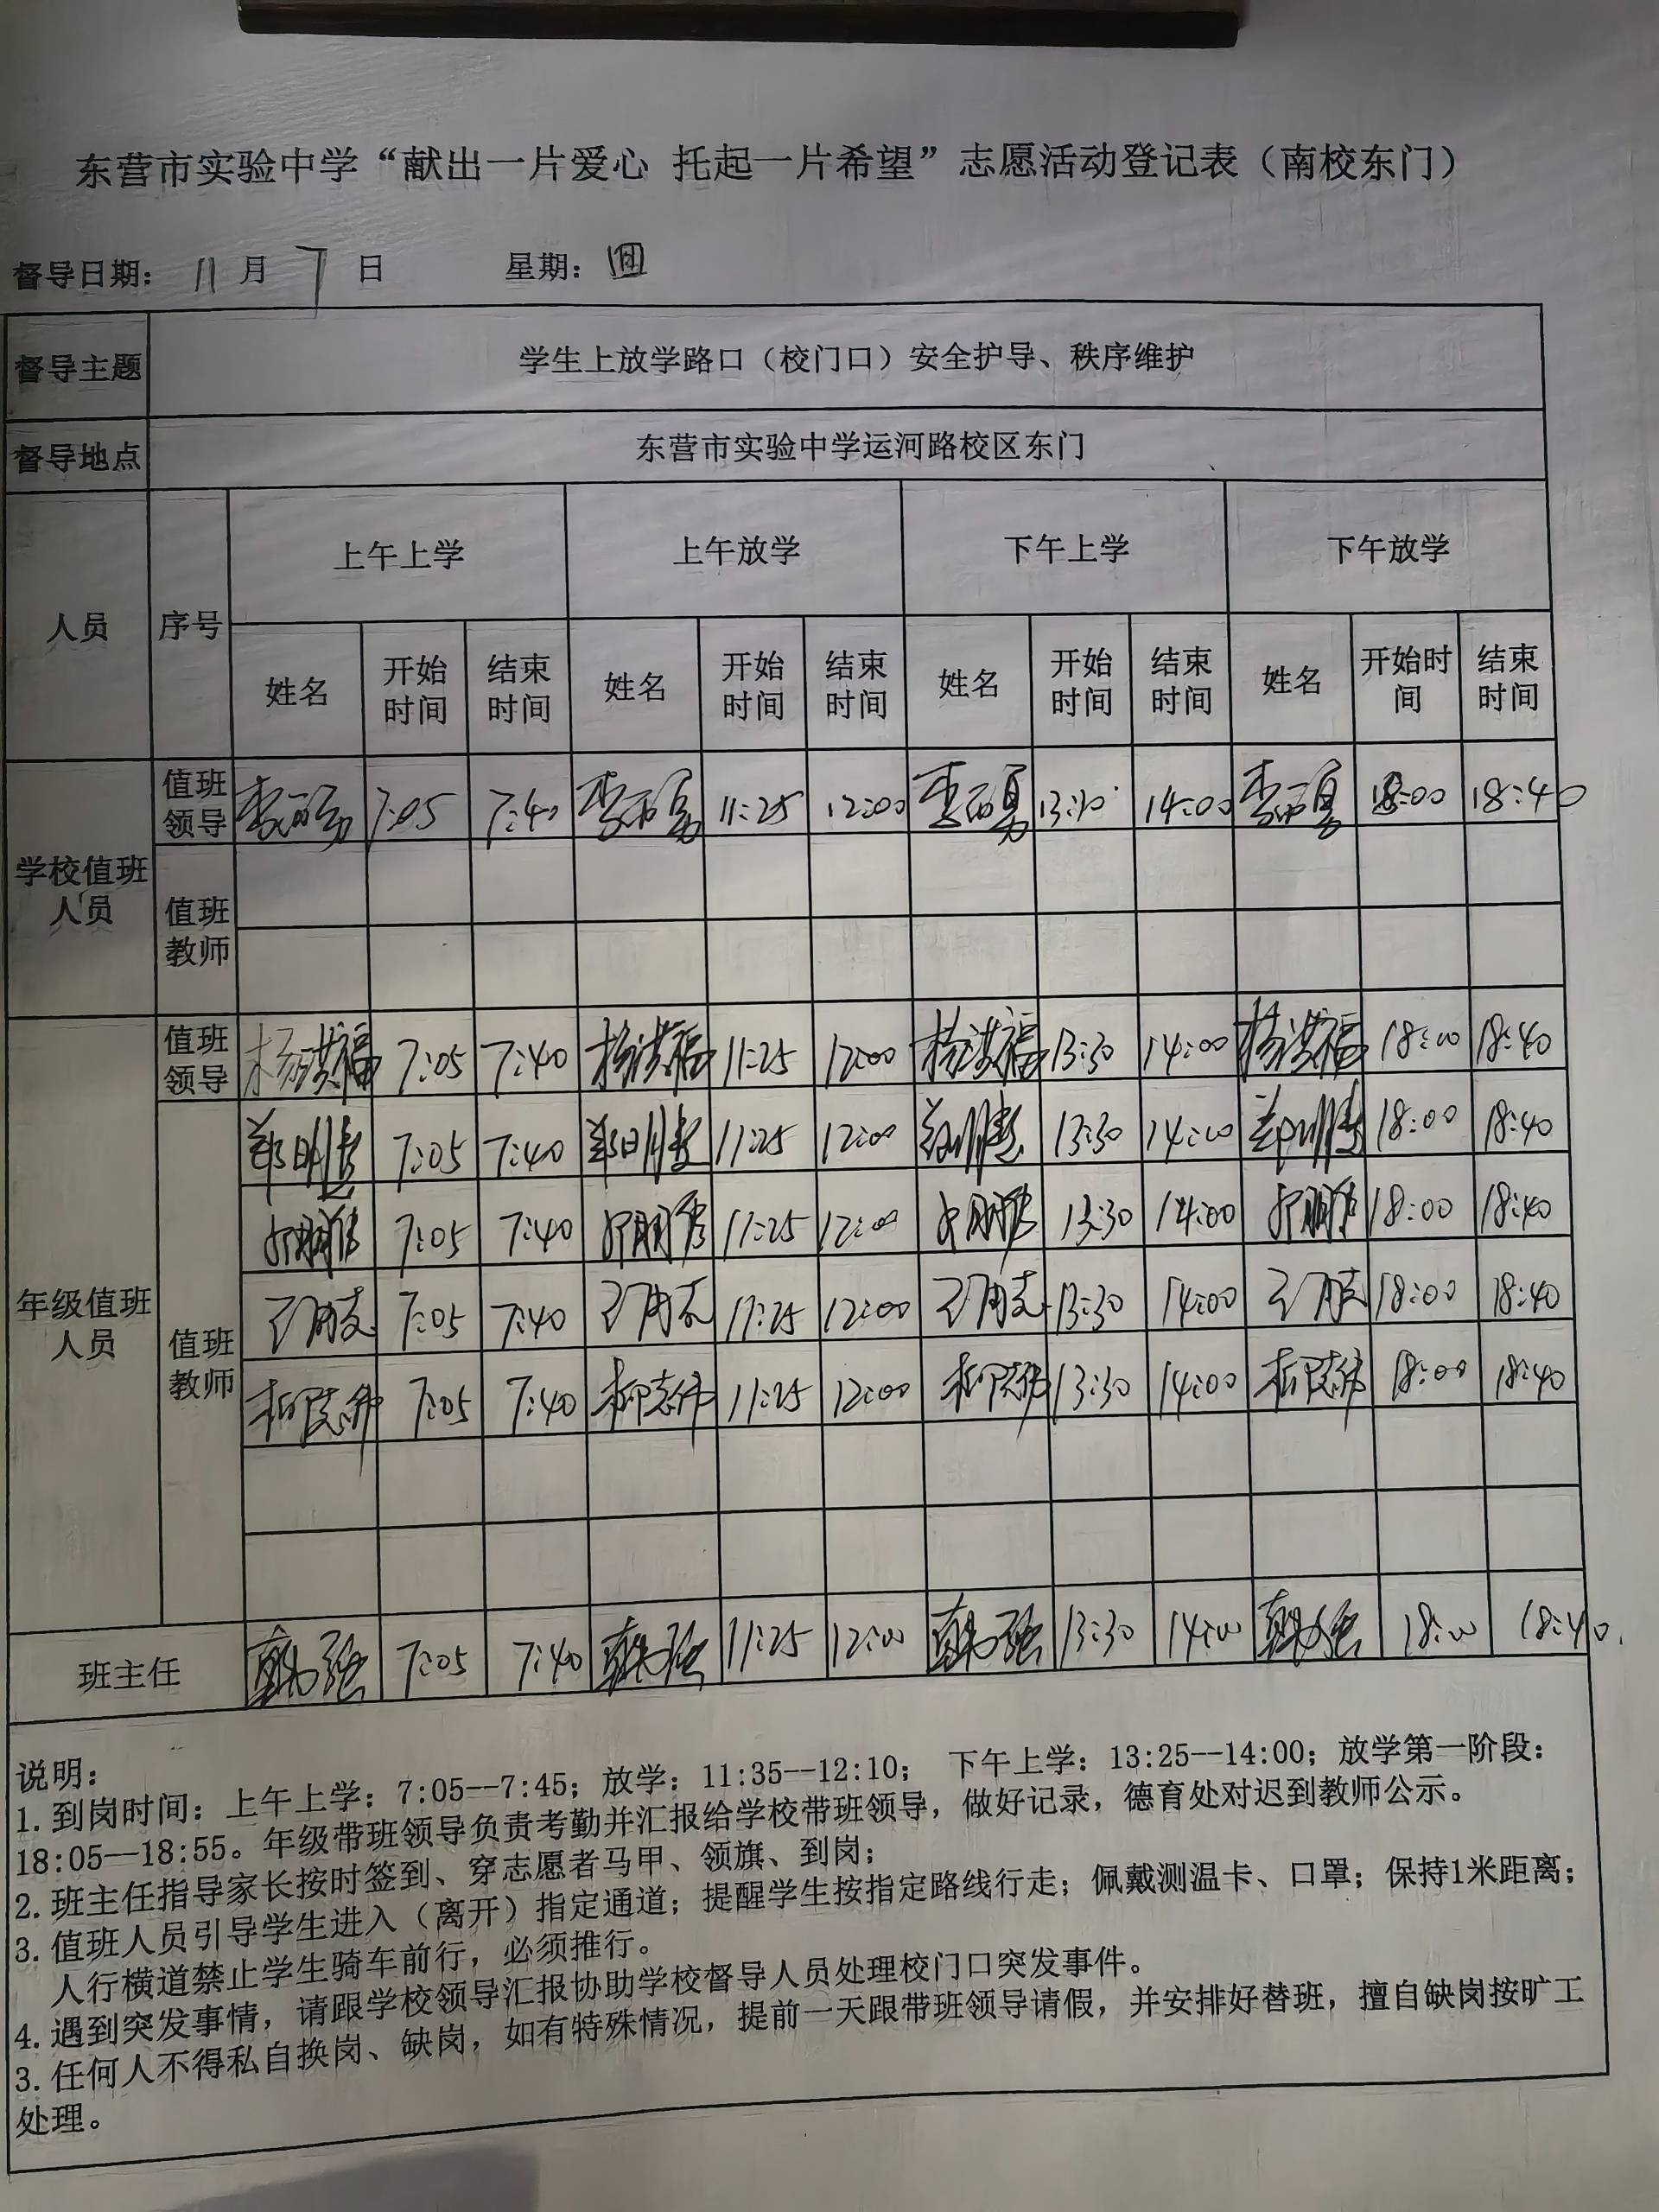 东营市实验中学“献出一片爱心 托起一片希望”志愿活动登记表（南校东门）
督导日期： 11 月 7 日 星期：四
督导主题 学生上放学路口（校门口）安全护导、秩序维护
督导地点 东营市实验中学运河路校区东门
人员 序号 上午上学 上午放学 下午上学 下午放学
姓名 开始时间 结束时间 姓名 开始时间 结束时间 姓名 开始时间 结束时间 姓名 开始时间 结束时间
学校值班人员 值班领导 7:05 7:40 11:25 12:00 14:00 18:00 18:40
值班教师
年级值班人员 值班领导 杨洪福 7:05 7:40 杨洪福 11:25 12:00 杨洪福 13:30 14:00 杨洪福 18:00 18:40
值班教师 7:05 7:40 11:25 12:00 13:30 14:00 18:00 18:40
7:05 7:40 11:25 12:00 13:30 14:00 18:00 18:40
7:05 7:40 11:25 12:00 13:30 14:00 18:00 18:40
柳志伟 7:05 7:40 柳志伟 11:25 12:00 柳志伟 13:30 14:00 柳志伟 18:00 18:40
班主任 7:05 7:40 11:25 12:00 13:30 14:00 18:00 18:40
说明：
1. 到岗时间：上午上学：7:05--7:45；放学：11:35--12:10； 下午上学：13:25--14:00；放学第一阶段：
18:05—18:55。年级带班领导负责考勤并汇报给学校带班领导，做好记录，德育处对迟到教师公示。
2. 班主任指导家长按时签到、穿志愿者马甲、领旗、到岗；
3. 值班人员引导学生进入（离开）指定通道；提醒学生按指定路线行走；佩戴测温卡、口罩；保持1米距离；
人行横道禁止学生骑车前行，必须推行。
4. 遇到突发事情，请跟学校领导汇报协助学校督导人员处理校门口突发事件。
3. 任何人不得私自换岗、缺岗，如有特殊情况，提前一天跟带班领导请假，并安排好替班，擅自缺岗按旷工
处理。